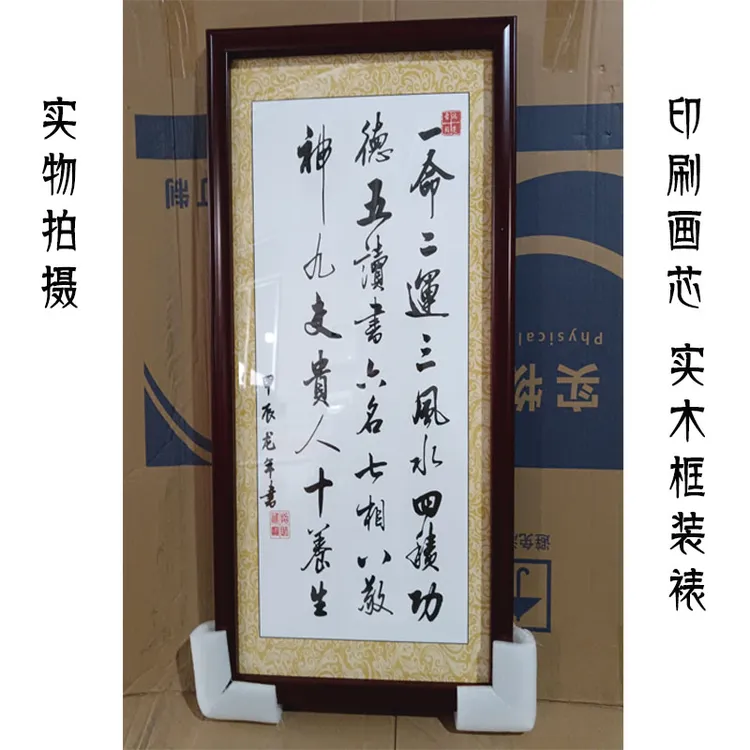 实物拍摄
一命二運三風水四積功
德五讀書六名七相八敬
神九交貴人十養生
甲辰龙年書
印刷画芯 实木框装裱
订制
Physical
实物
避免